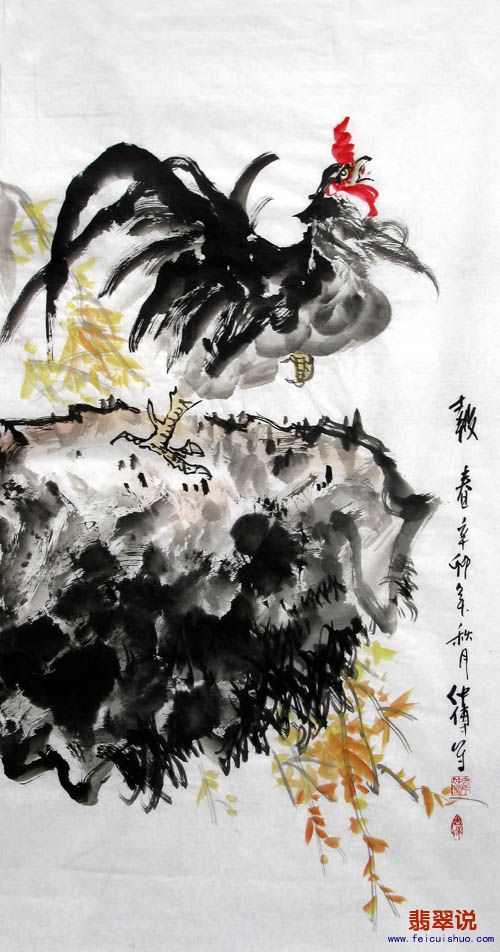 報春辛卯年秋月仲写
翡翠说
www.feicuishuo.com